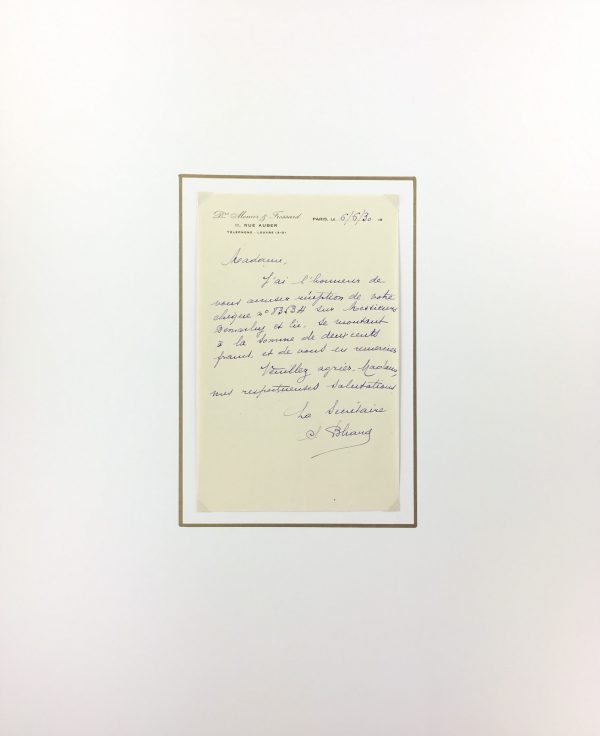 Drs Monier & Fossard
11, RUE AUBER
TÉLÉPHONE - LOUVRE
PARIS, LE 6/6/30
Madame,
J'ai l'honneur de
vous accuser réception de votre
chèque n° sur Messieurs
et Cie. se montant
à la somme de deux cents
francs et de vous en remercier
Veuillez agréer Madame,
mes respectueuses salutations
La Secrétaire